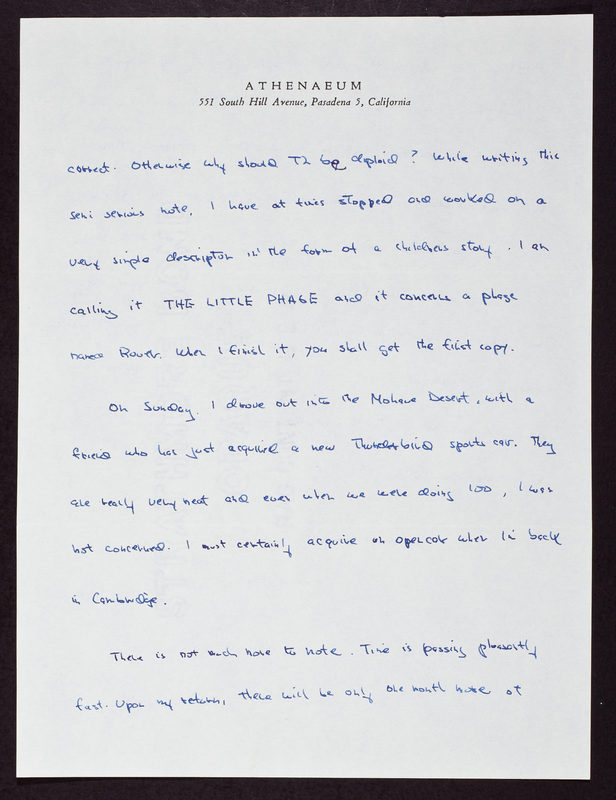 ATHENAEUM
551 South Hill Avenue, Pasadena 5, California
correct. Otherwise why should T2 be diploid? While writing this
semi serious note, I have at times stopped and worked on a
very simple description in the form of a childrens story. I am
calling it THE LITTLE PHAGE and it concerns a phage
named Rover. When I finish it, you shall get the first copy.
On Sunday, I drove out into the Mohave Desert, with a
friend who has just acquired a new Thunderbird sports car. They
are really very neat and even when we were doing 100, I was
not concerned. I must certainly acquire an opencar when I'm back
in Cambridge.
There is not much more to note. Time is passing pleasantly
fast. Upon my return, there will be only one month more at